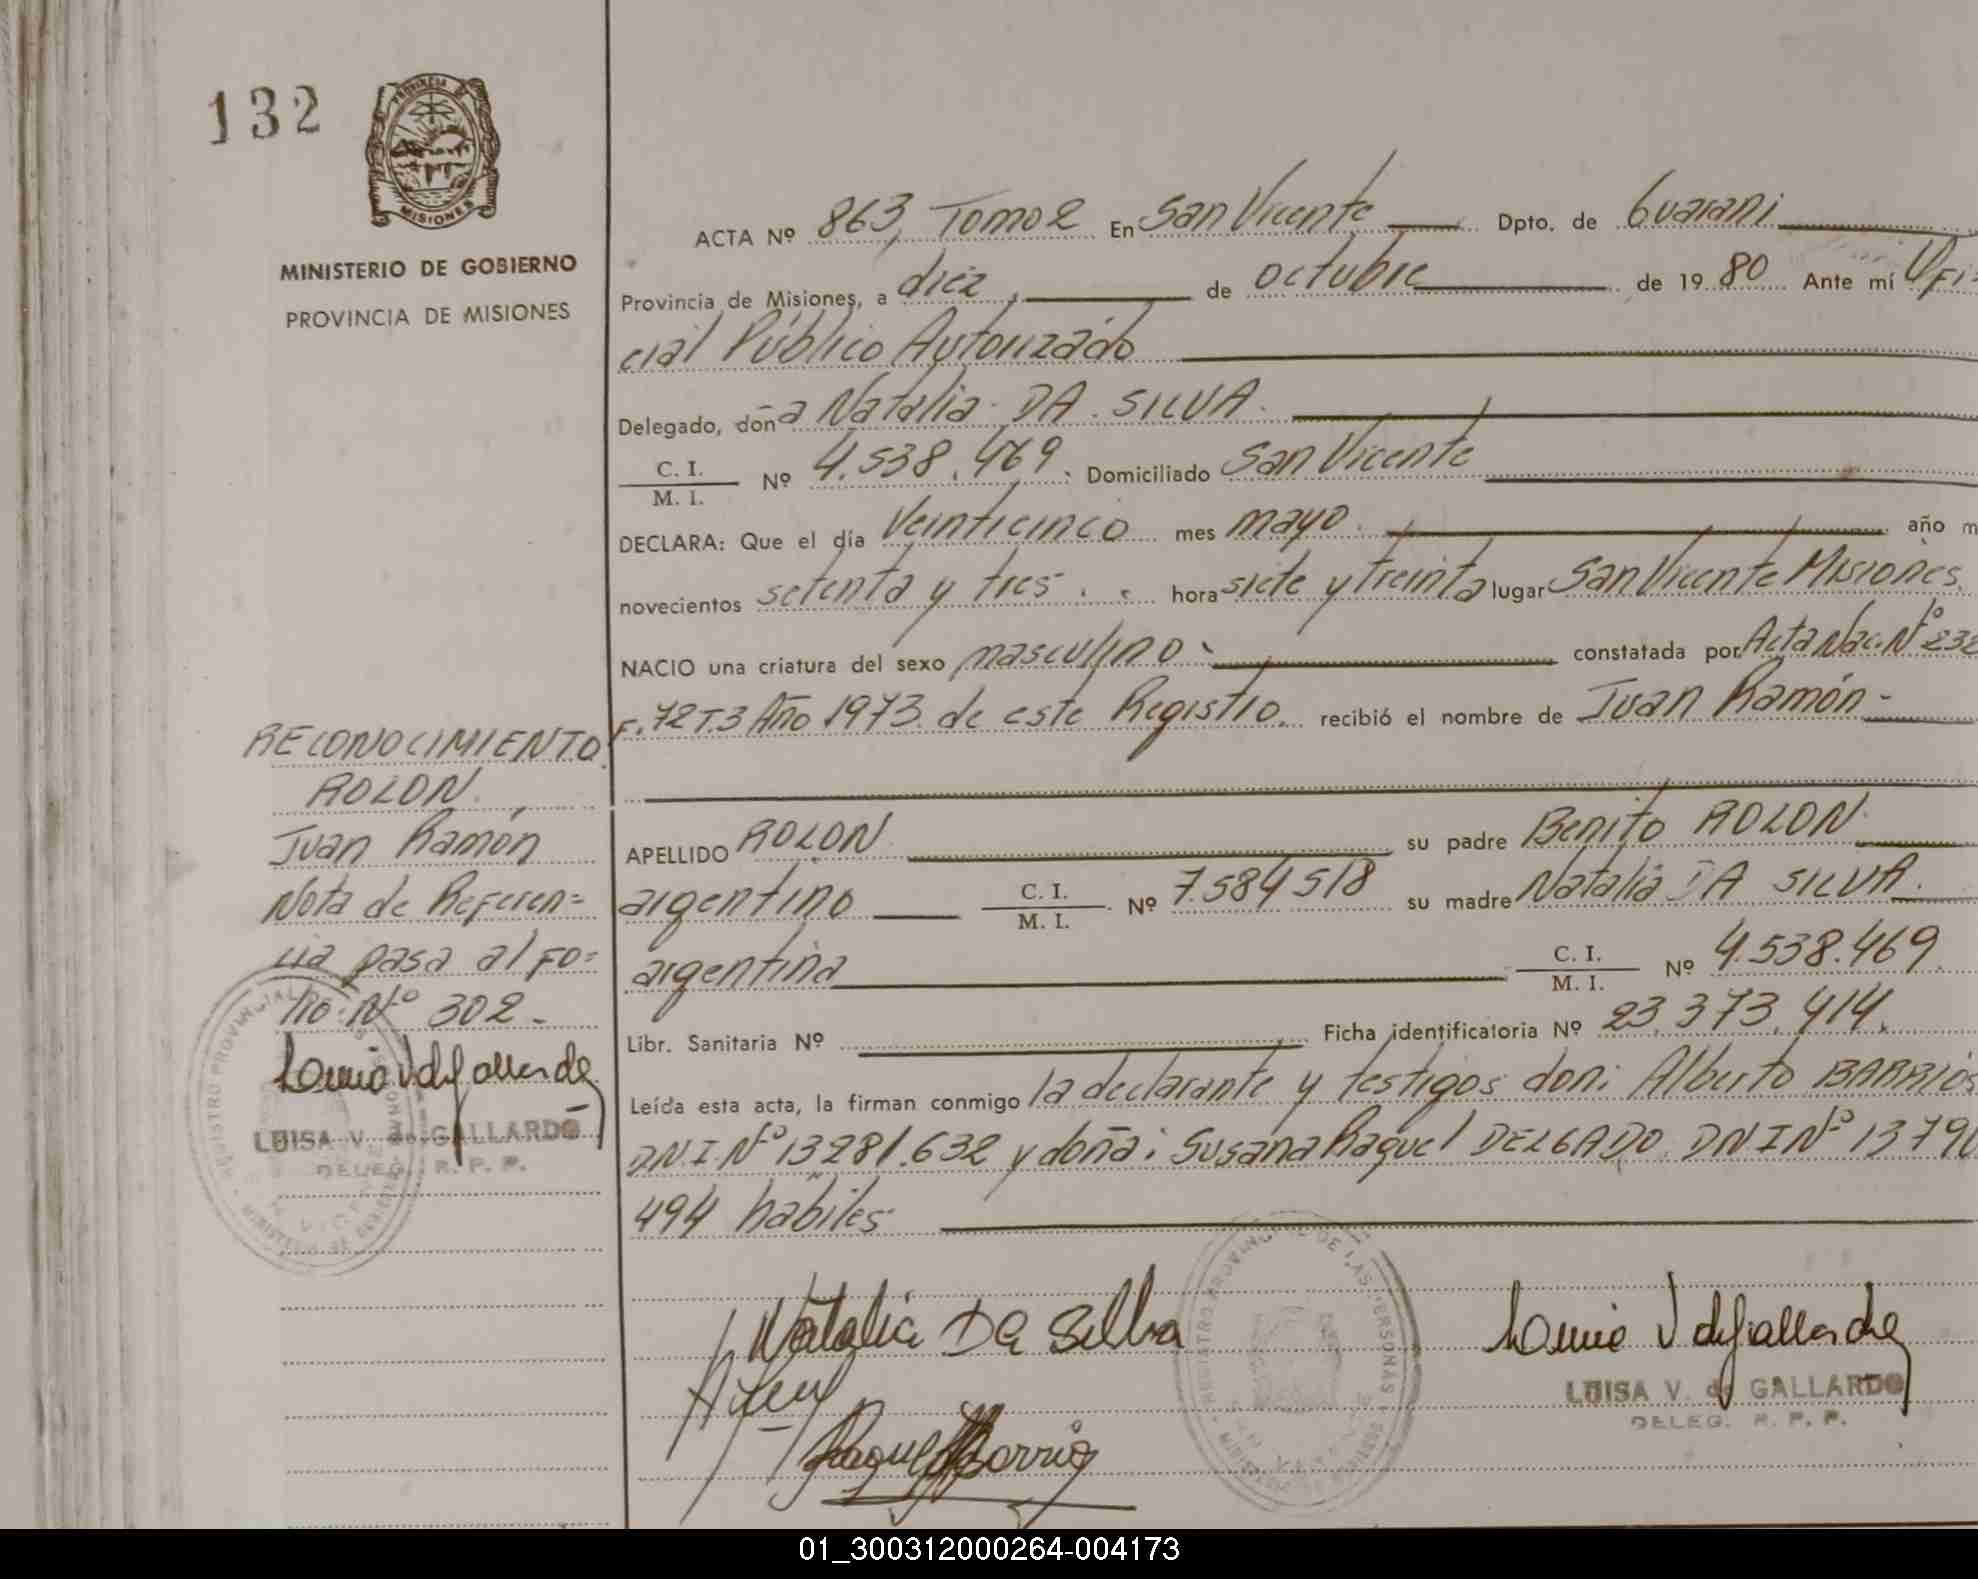 132
MISIONES
MINISTERIO DE GOBIERNO
PROVINCIA DE MISIONES
ACTA Nº 863, Tomo 2 En San Vicente Dpto. de Guarani
Provincia de Misiones, a diez, de octubre de 19 80 Ante mí Ofi-
cial Público Autorizado
Delegado, doña Natalia DA SILVA.
C. I.
M. I. Nº 4.538.469. Domiciliado San Vicente
DECLARA: Que el día Veinticinco mes mayo. año m
novecientos setenta y tres. hora siete y treinta lugar San Vicente Misiones.
NACIO una criatura del sexo masculino constatada por Acta Nac. Nº 232
F. 72 T.3 Año 1973 de este Registro. recibió el nombre de Juan Ramón-
RECONOCIMIENTO.
ROLON.
Juan Ramón
Nota de Referen=
cia pasa al Fo=
lio. Nº 302.-
LUISA V. de GALLARDO
DELEG. R. P. P.
APELLIDO ROLON su padre Benito ROLON.
argentino C. I.
M. I. Nº 7.584518 su madre Natalia DA SILVA.
argentina C. I.
M. I. Nº 4.538.469.
Libr. Sanitaria Nº Ficha identificatoria Nº 23.373.414.
Leída esta acta, la firman conmigo la declarante y testigos don: Alberto BARRIOS
D.N.I. Nº 13281.632 y doña: Susana Raquel DELGADO. DNI Nº 13790
494 habiles
Natalia Da Silba
LUISA V. de GALLARDO
DELEG. R. P. P.
REGISTRO PROVINCIAL DE LAS PERSONAS
01_300312000264-004173